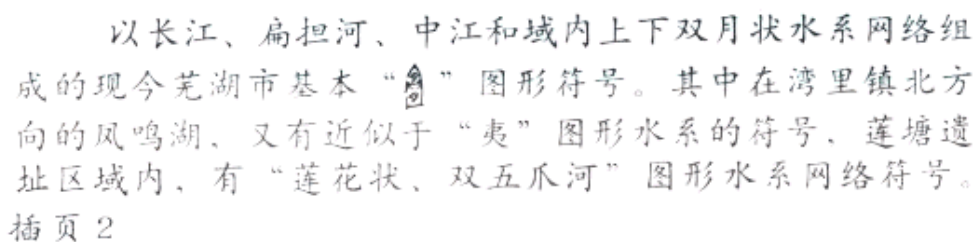 以长江、扁担河、中江和域内上下双月状水系网络组
成的现今芜湖市基本“”图形符号。其中在湾里镇北方
向的凤鸣湖、又有近似于“夷”图形水系的符号、莲塘遗
址区域内、有“莲花状、双五爪河”图形水系网络符号。
插页2